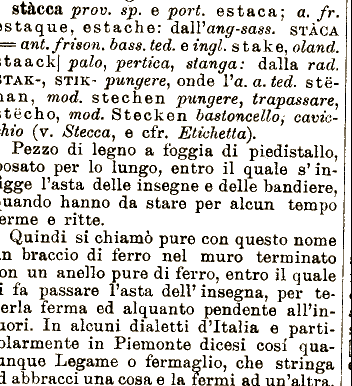 stàcca prov. sp. e port. estaca; a. fr.
estaque, estache: dall'ang-sass. STÀCA
= ant. frison. bass. ted. e ingl. stake, oland.
staack] palo, pertica, stanga: dalla rad.
STAK-, STIK- pungere, onde l'a. a. ted. stë-
han, mod. stechen pungere, trapassare,
stëcho, mod. Stecken bastoncello, cavic-
chio (v. Stecca, e cfr. Etichetta).
Pezzo di legno a foggia di piedistallo,
posato per lo lungo, entro il quale s'in-
figge l'asta delle insegne e delle bandiere,
quando hanno da stare per alcun tempo
ferme e ritte.
Quindi si chiamò pure con questo nome
un braccio di ferro nel muro terminato
con un anello pure di ferro, entro il quale
si fa passare l'asta dell'insegna, per te-
nerla ferma ed alquanto pendente all'in-
fuori. In alcuni dialetti d'Italia e parti-
colarmente in Piemonte dicesi cosí qua-
lunque Legame o fermaglio, che stringa
ed abbracci una cosa e la fermi ad un'altra.